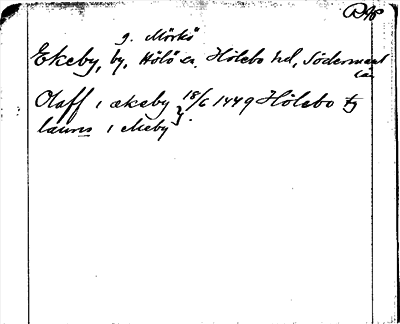 DMS
g. Mörkö
Ekeby, by, Hölö sn, Hölebo hd, Södermanl
län
Olaff i ækeby } 18/6 1449 Hölebo tg
laurns i ekeby